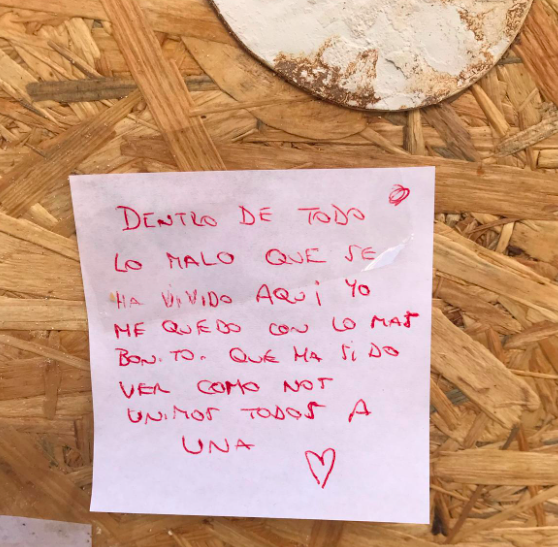 DENTRO DE TODO
LO MALO QUE SE
HA VIVIDO AQUÍ YO
ME QUEDO CON LO MAS
BONITO. QUE HA SIDO
VER COMO NOS
UNIMOS TODOS A
UNA